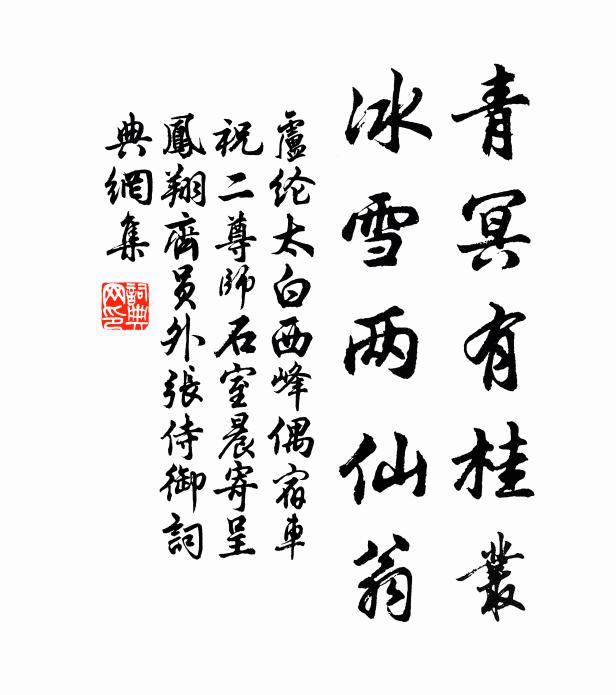 青冥有桂叢
冰雪两仙翁
盧纶太白西峰偶宿車
祝二尊師石室晨寄呈
鳳翔齊員外張侍御詞
典網集
詞典
网印